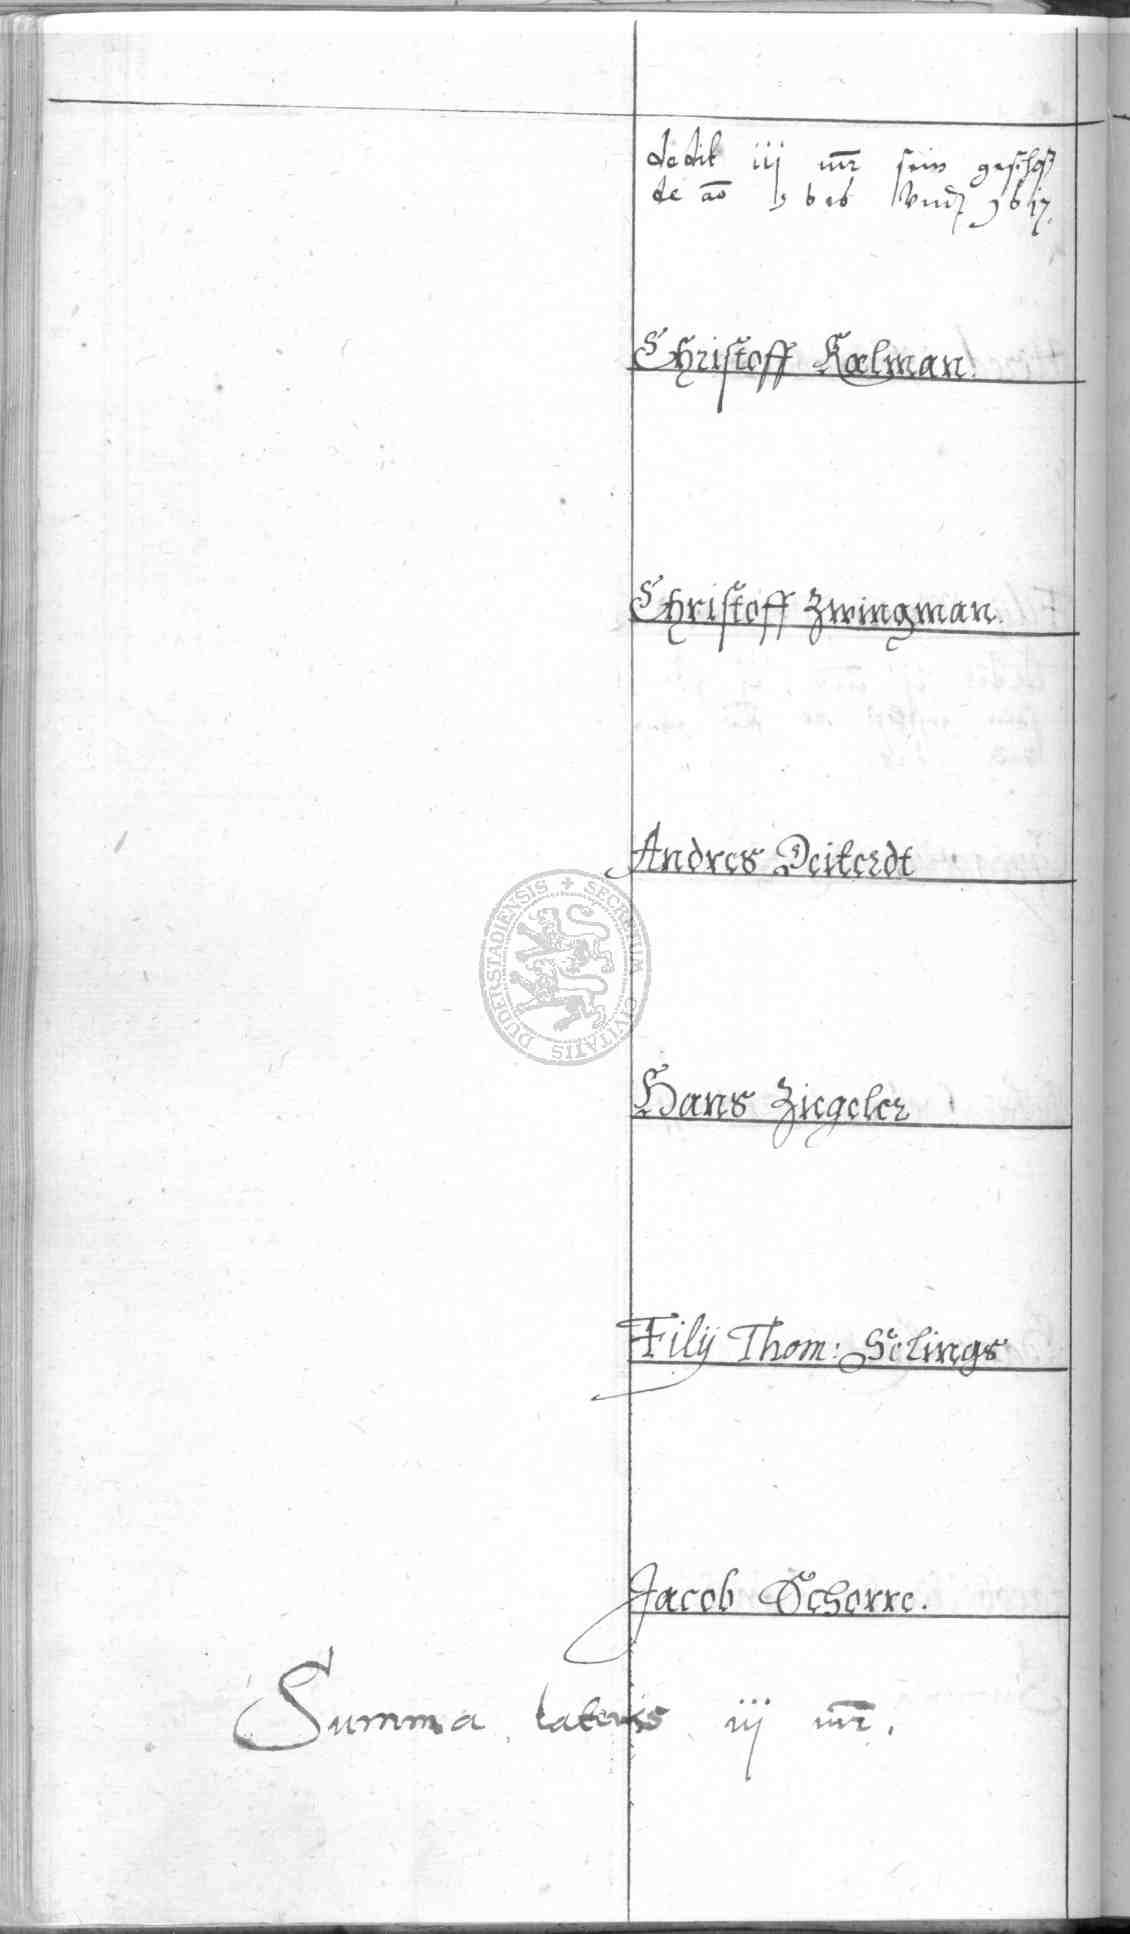 dedit iij mr sein geschoß
de ao 1616 Vnd 1617.
Christoff Kœlman.
Christoff Zwingman.
Andres Deiterdt
SECRETUM CIVITATIS DUDERSTADIENSIS
Hans Ziegeler
Filij Thom: Selings
Jacob Schorre.
Summa lateris iij mr.